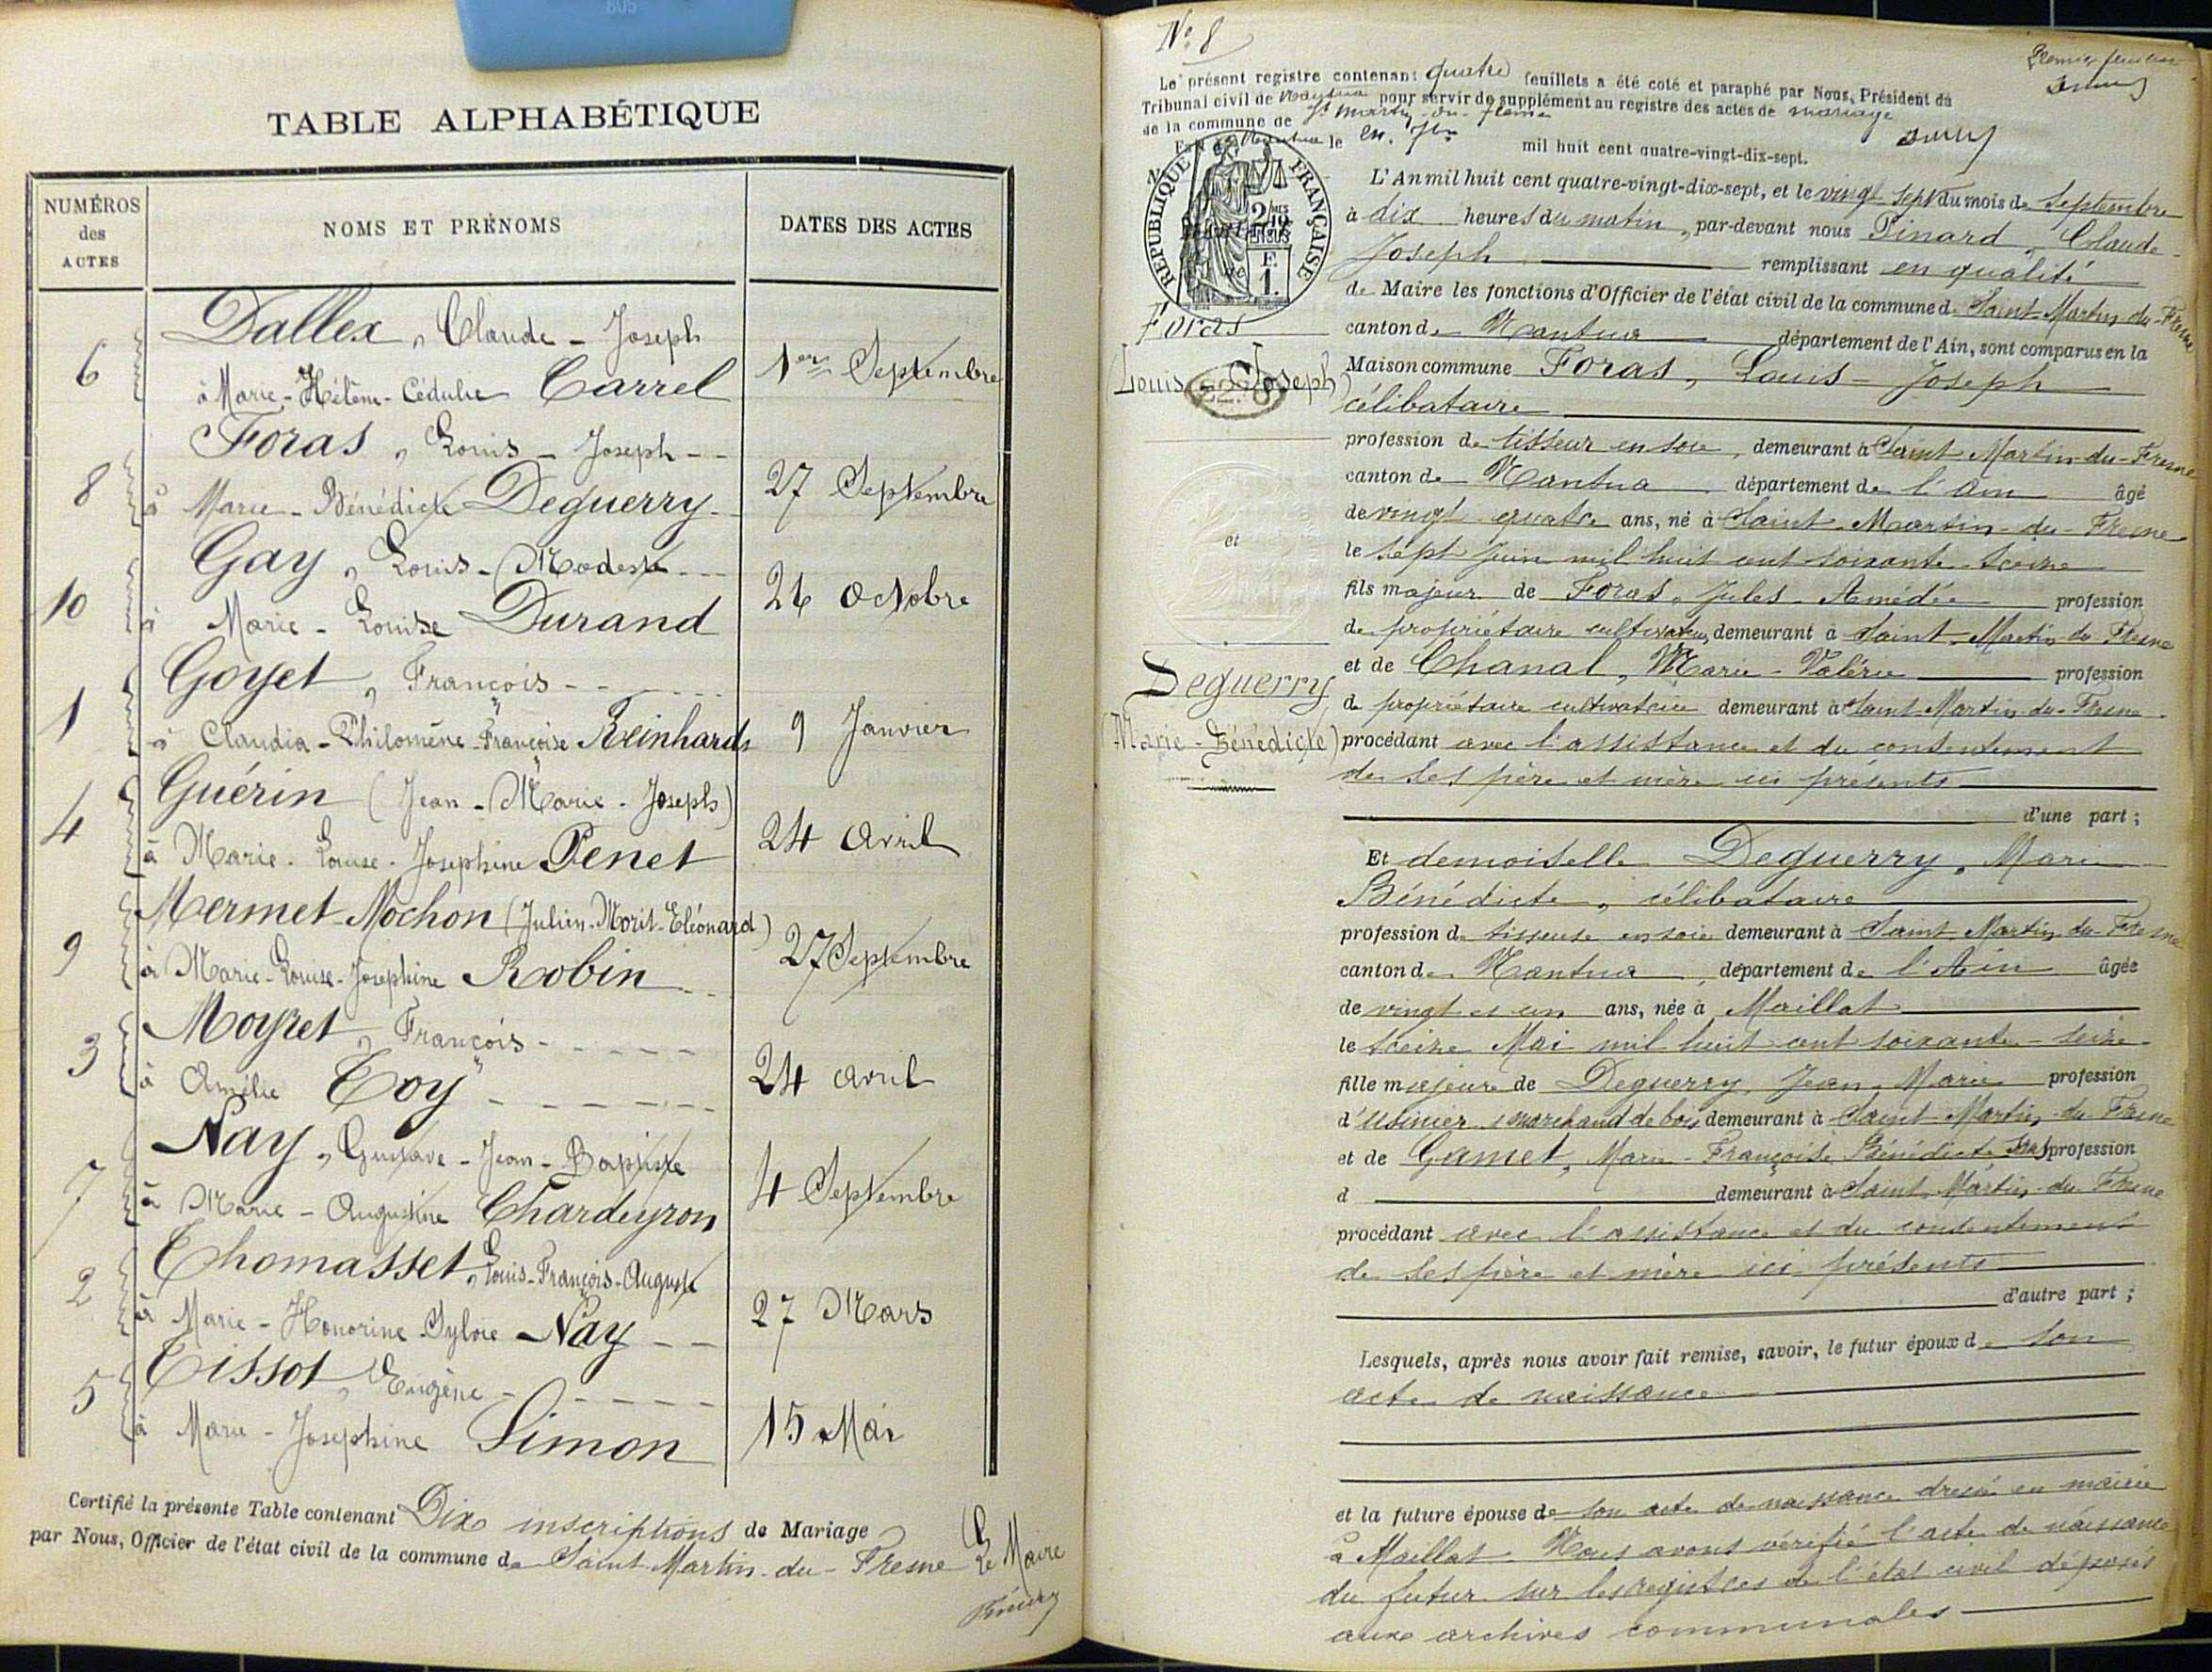 TABLE ALPHABÉTIQUE
NUMÉROS des ACTES
NOMS ET PRÉNOMS
DATES DES ACTES
Dallex, Claude - Joseph
6 à Marie-Hélène-Cédulie Carrel 1er Septembre
Foras, Louis - Joseph
8 à Marie - Bénédicte Deguerry 27 Septembre
Gay, Louis - Modeste
10 à Marie - Louise Durand 26 Octobre
Goyet, François
1 à Claudia - Philomène - Françoise Reinhards 9 Janvier
Guérin (Jean - Marie - Joseph)
4 à Marie - Louise - Josephine Penet 24 Avril
Mermet-Nochon (Julien-Morit-Eléonard)
9 à Marie-Louise-Josephine Robin 27 Septembre
Moyret, François
3 à Amélie Toy 24 Avril
Nay, Gustave - Jean - Baptiste
7 à Marie - Augustine Chardeyron 4 Septembre
Thomasset, Louis-François-Auguste
2 à Marie - Honorine - Sylvie Nay 27 Mars
Tissot, Eugène
5 à Marie - Josephine Simon 15 Mai
Certifié la présente Table contenant Dix inscriptions de Mariage
par Nous, Officier de l'état civil de la commune de Saint-Martin-du-Fresne Le Maire
No 8
Premier feuillet
Le présent registre contenant quatre feuillets a été coté et paraphé par Nous, Président du
Tribunal civil de Nantua pour servir de supplément au registre des actes de mariage
de la commune de St Martin-du-Fresne
Nantua le mil huit cent quatre-vingt-dix-sept.
RÉPUBLIQUE FRANÇAISE
L'An mil huit cent quatre-vingt-dix-sept, et le vingt sept du mois de Septembre
à dix heures du matin, par-devant nous Pinard, Claude
Joseph remplissant en qualité
de Maire les fonctions d'Officier de l'état civil de la commune de Saint-Martin-du-Fresne
canton de Nantua département de l'Ain, sont comparus en la
Foras
(Louis Joseph)
et
Deguerry
(Marie-Bénédicte)
Maison commune Foras, Louis - Joseph
célibataire
profession de tisseur en soie, demeurant à Saint Martin-du-Fresne
canton de Nantua département de l'Ain âgé
de vingt quatre ans, né à Saint-Martin-du-Fresne
le sept Juin mil huit cent soixante-treize
fils majeur de Foras, Jules-Amédée profession
de propriétaire cultivateur, demeurant à Saint-Martin du Fresne
et de Chanal, Marie - Valérie profession
de propriétaire cultivatrice demeurant à Saint-Martin-du-Fresne
procédant avec l'assistance et du consentement
de ses père et mère ici présents
d'une part ;
Et demoiselle Deguerry, Marie
Bénédicte, célibataire
profession de tisseuse en soie demeurant à Saint Martin du Fresne
canton de Nantua, département de l'Ain âgée
de vingt et un ans, née à Maillat
le treize Mai mil huit cent soixante-seize
fille majeure de Deguerry, Jean-Marie profession
d'usinier marchand de bois demeurant à Saint-Martin-du-Fresne
et de Gamet, Marie-Françoise Bénédicte sans profession
d demeurant à Saint-Martin-du-Fresne
procédant avec l'assistance et du consentement
de ses père et mère ici présents
d'autre part ;
Lesquels, après nous avoir fait remise, savoir, le futur époux de son
acte de naissance
et la future épouse de son acte de naissance dressé en mairie
à Maillat. Nous avons vérifié l'acte de naissance
du futur sur les registres de l'état civil déposés
aux archives communales